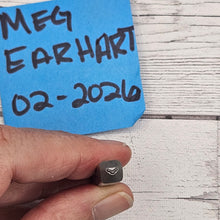 MEG
EARHART
02-2026